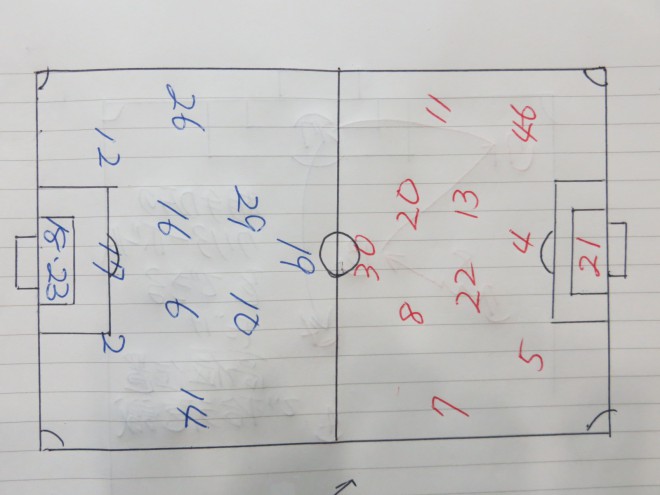 19
29 10
26 16 6 14
12 2
18・23
30
8 20
7 22 13 11
5 4 46
21